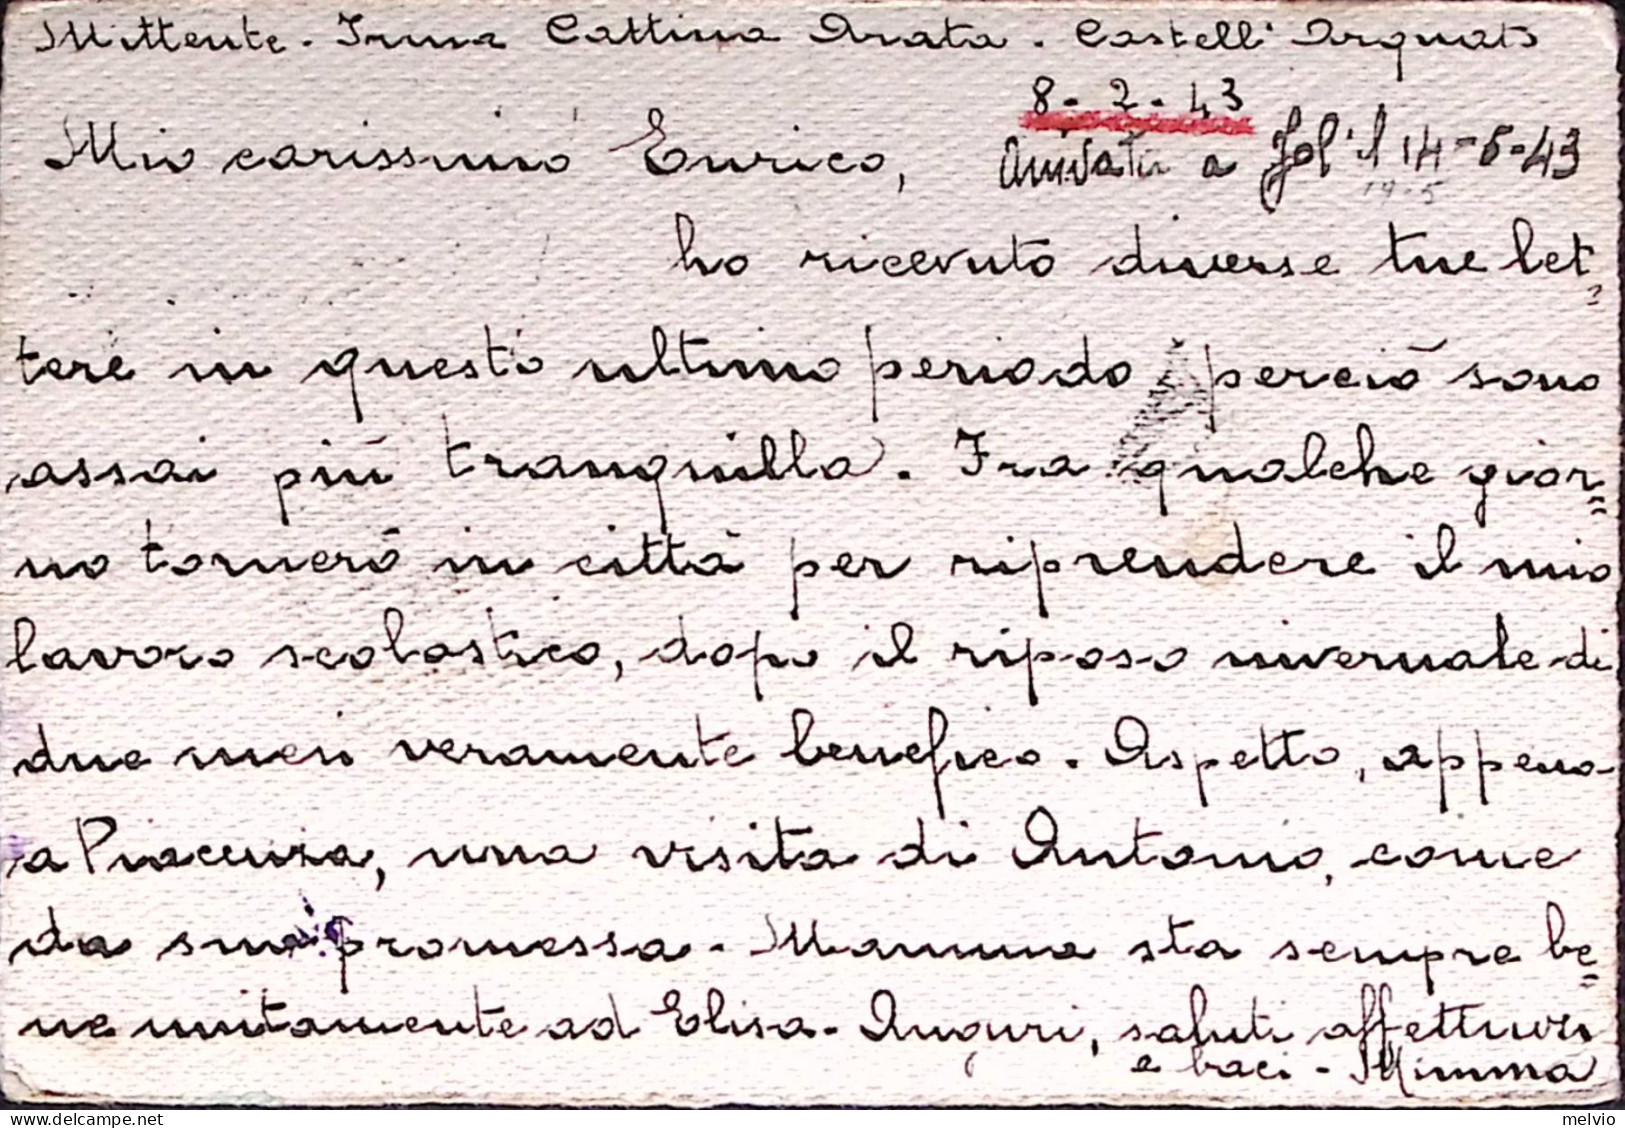 Mittente - Irma Cattina Arata - Castell' Arquato
8-2-43
Mio carissimo Enrico,
arrivata a Jol' il 14-5-43
19-5
ho ricevuto diverse tue let-
tere in questo ultimo periodo perciò sono
assai più tranquilla. Fra qualche gior=
no tornerò in città per riprendere il mio
lavoro scolastico, dopo il riposo invernale di
due mesi veramente benefico. Aspetto, appena
a Piacenza, una visita di Antonio, come
da sua promessa - Mamma sta sempre be=
ne unitamente ad Elisa - Auguri, saluti affettuosi
e baci - Mimma
melvio